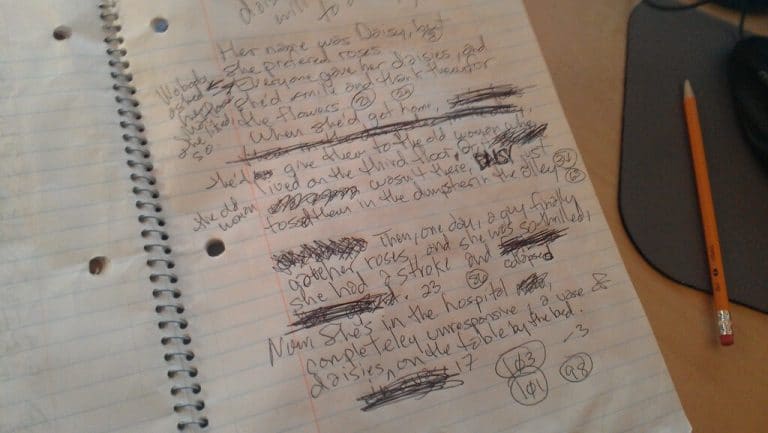 will
to
Her name was Daisy, but
she prefered roses
Everyone gave her daisies, and
she'd smile and thank them for
the flowers.
Nobody
asked
her
she liked
so
When she'd get home,
she'd give them to the old woman who
lived on the third floor or
the old
woman
wasn't there, DAISY just
tossed them in the dumpster in the alley
Then, one day, a guy finally
gat her roses, and she was so thrilled,
she had a stroke and collapsed
23
Now she's in the hospital,
completeley unresponsive, a vase &
daisies on the table by the bed.
17
103
-3
101
98